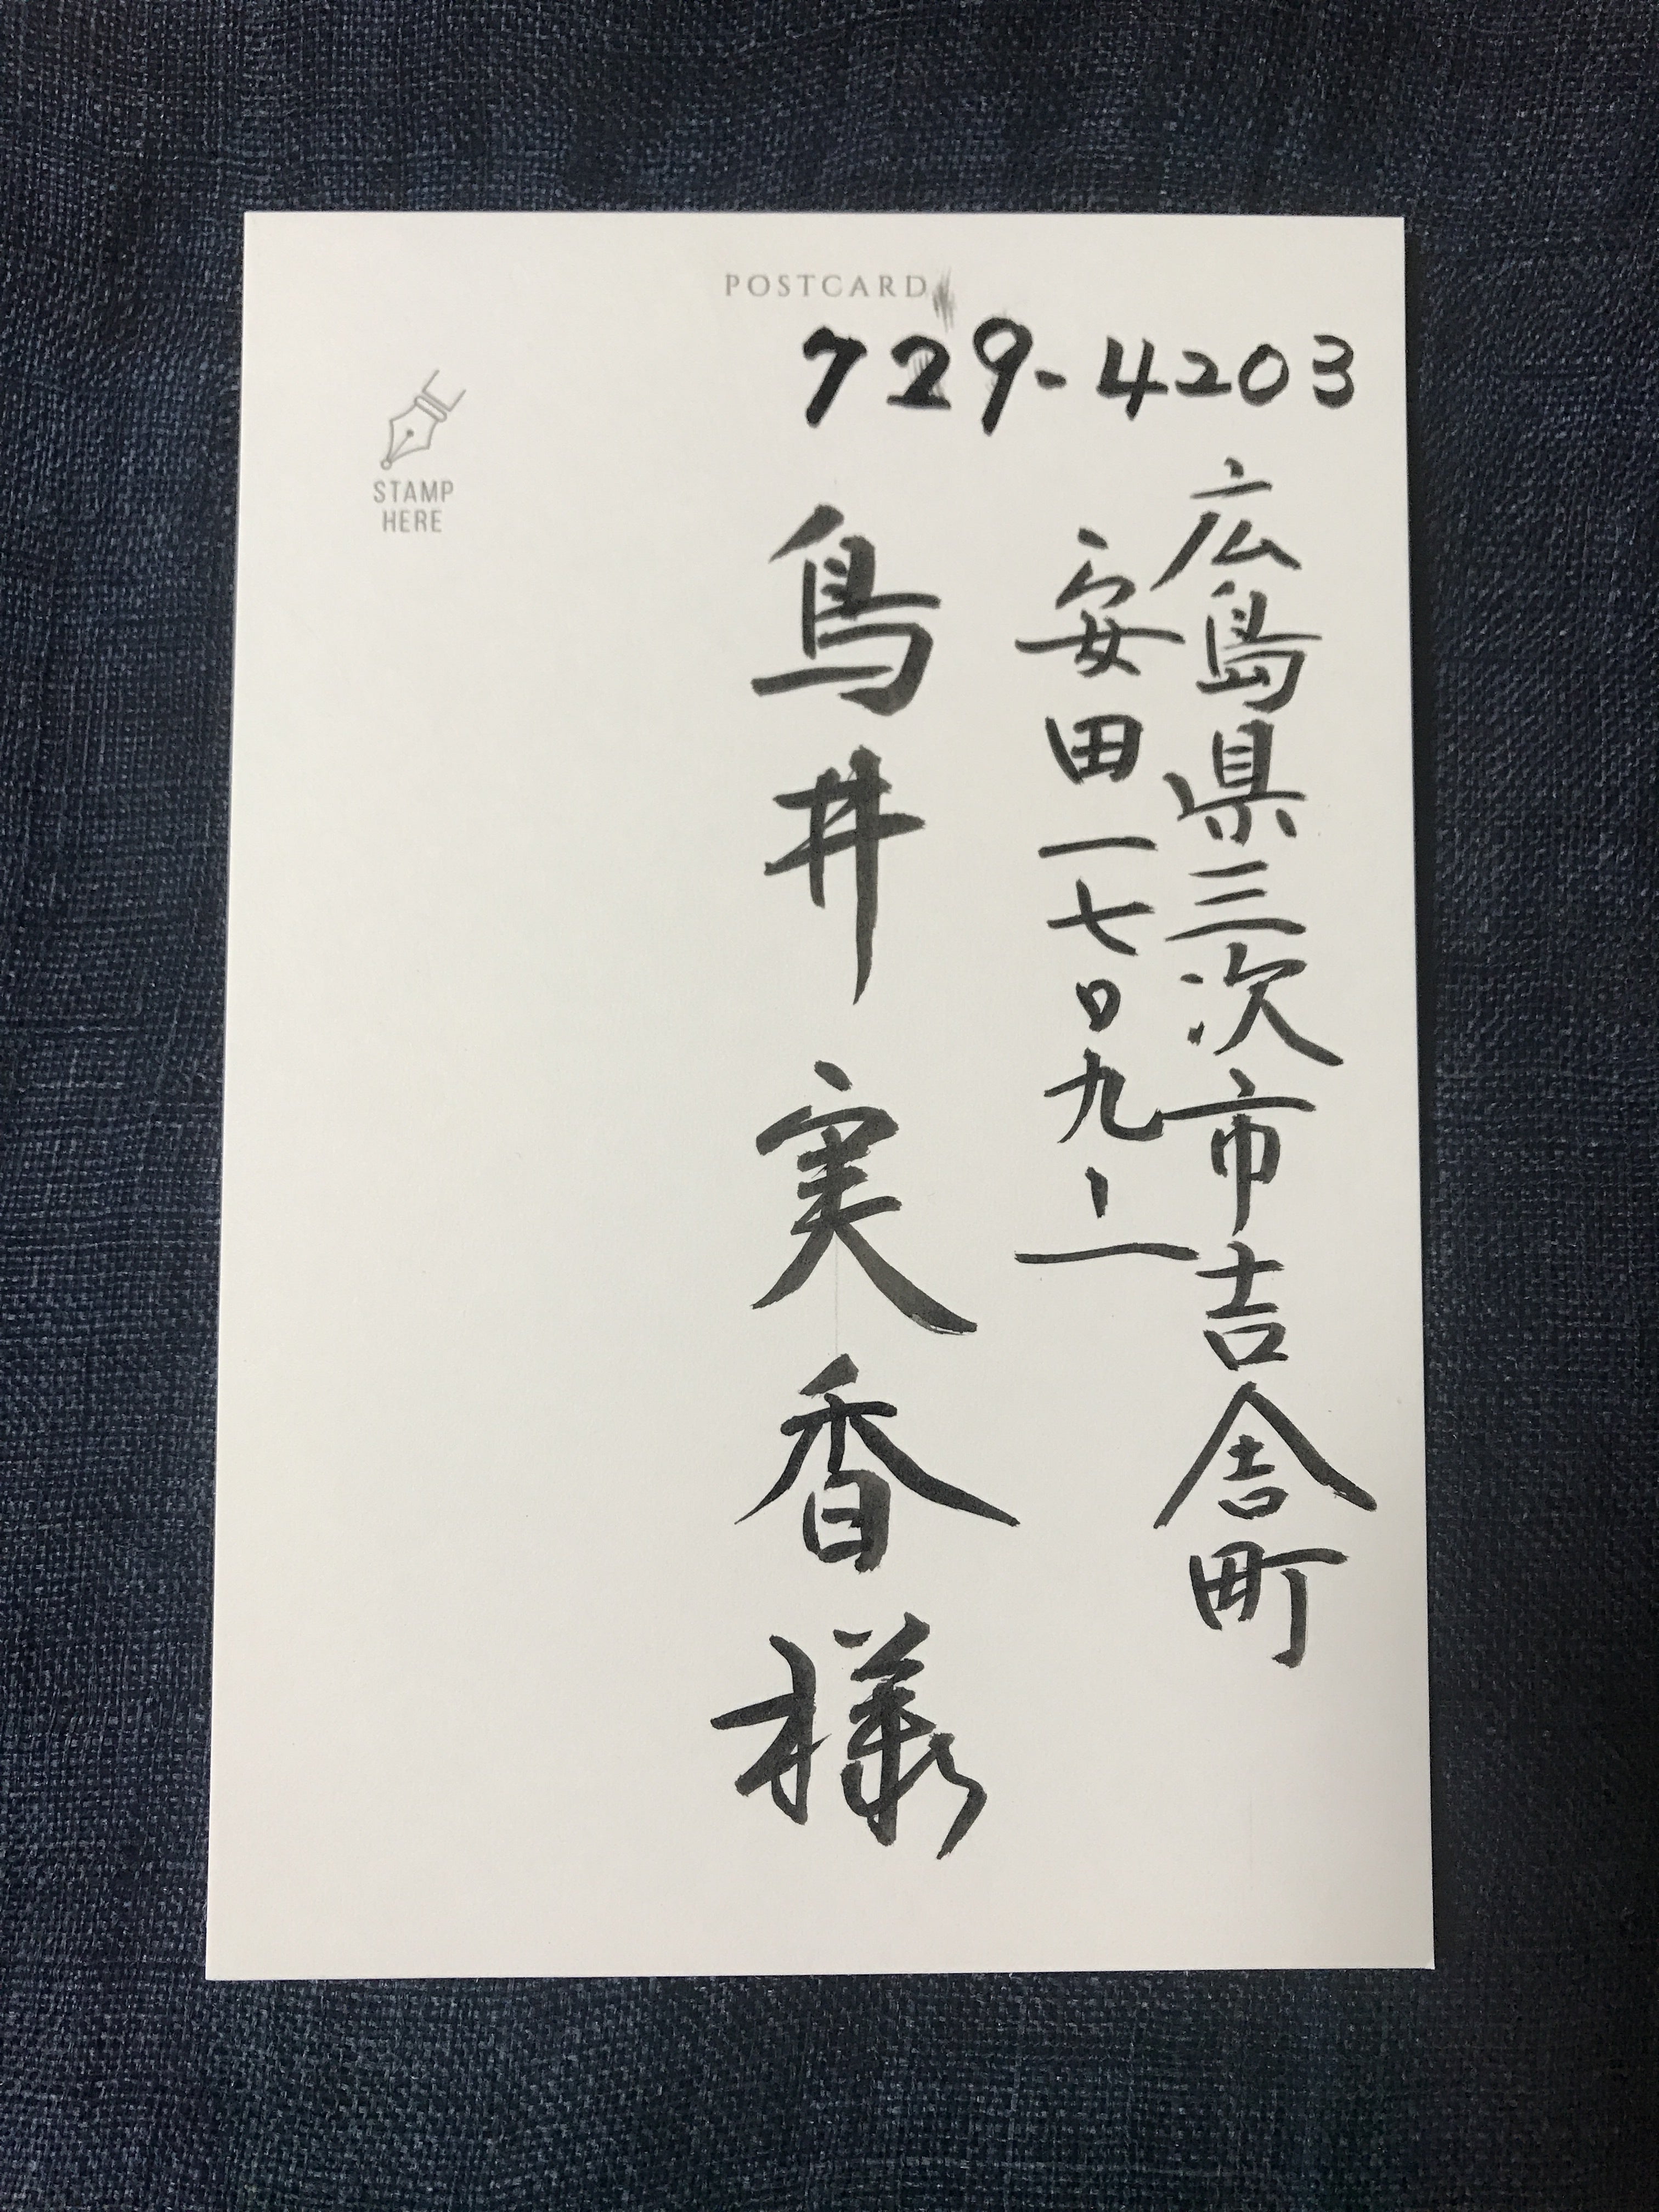 POSTCARD
729-4203
STAMP
HERE
広島県三次市吉舎町
安田一七〇九-一
鳥井実香様